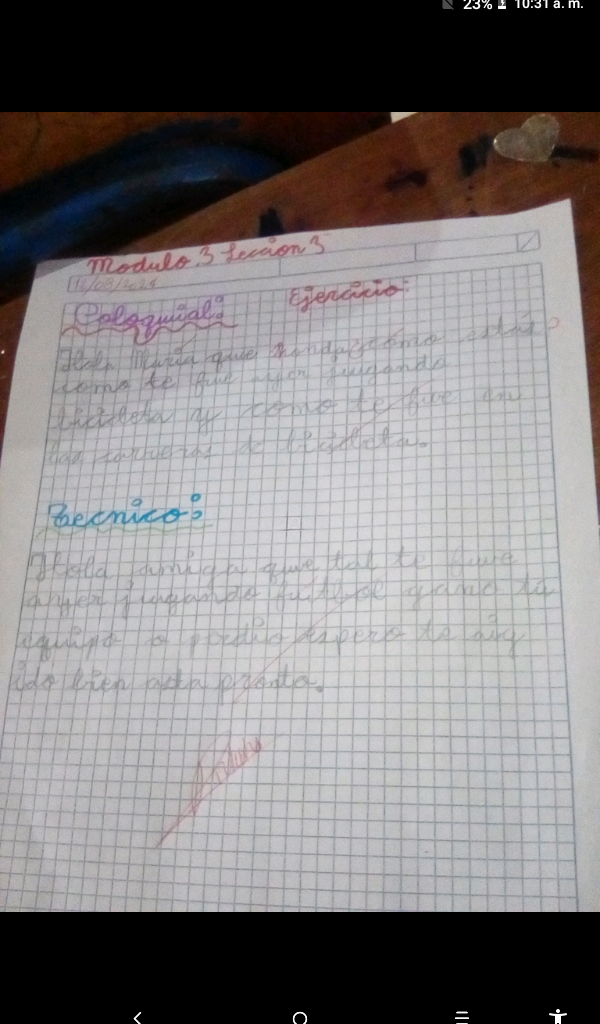 23% 10:31 a. m.
Modulo 3 Leccion 3
Ejercicio:
Coloquial:
Hola Maria que como estás?
como te fue ayer jugando
bicicleta y como te fue en
las carreras de bicicleta.
Tecnico:
Hola amiga que tal te fue
ayer jugando futbol gano tu
equipo o perdio espero te aiy
ido bien asta pronto.